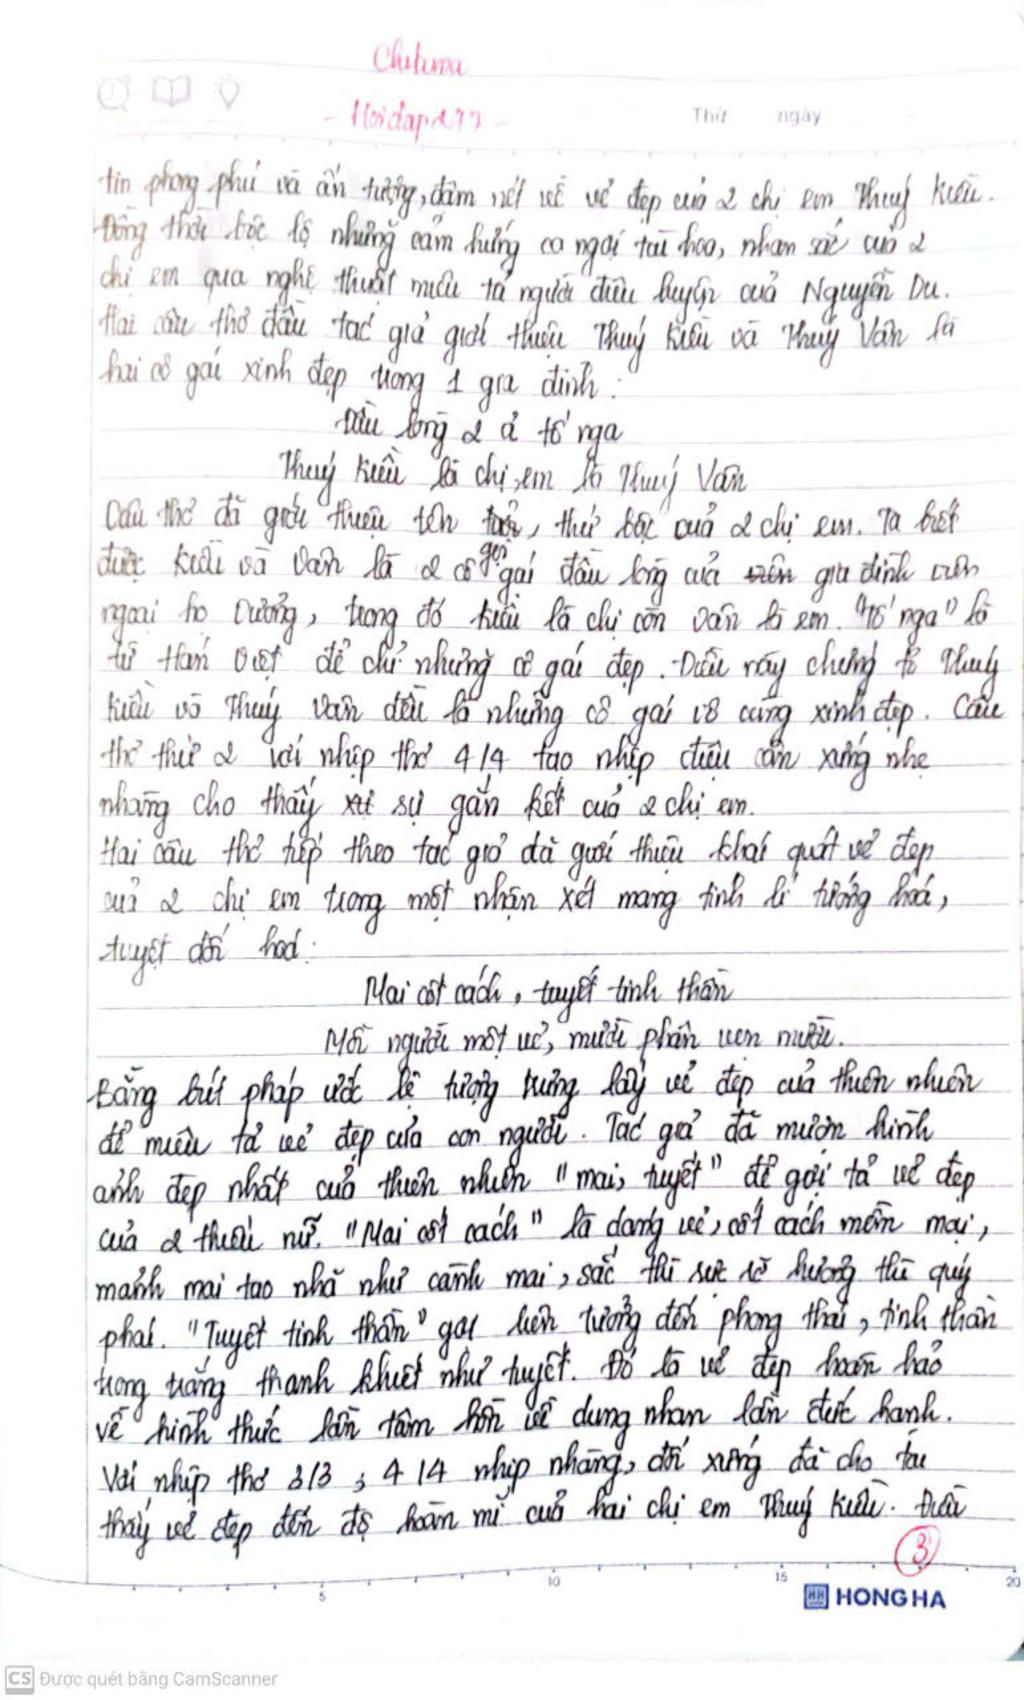 Chitma
- Hoidap247 -
Thứ ngày
tin phong phú và ấn tượng, đậm nét về vẻ đẹp của 2 chị em Thuý Kiều.
Đồng thời bộc lộ những cảm hứng ca ngợi tài hoa, nhan sắc của 2
chị em qua nghệ thuật miêu tả người điêu luyện của Nguyễn Du.
Hai câu thơ đầu tác giả giới thiệu Thuý Kiều và Thuý Vân là
hai cô gái xinh đẹp trong 1 gia đình:
Đầu lòng 2 ả tố nga
Thuý Kiều là chị, em là Thuý Vân
Câu thơ đã giới thiệu tên tuổi, thứ bậc của 2 chị em. Ta biết
được Kiều và Vân là 2 cô gái đầu lòng của gia đình viên
ngoại họ Vương, trong đó Kiều là chị còn Vân là em. "Tố nga" là
từ Hán Việt để chỉ những cô gái đẹp. Điều này chứng tỏ Thuý
Kiều và Thuý Vân đều là những cô gái vô cùng xinh đẹp. Câu
thơ thứ 2 với nhịp thơ 4/4 tạo nhịp điệu cân xứng nhẹ
nhàng cho thấy sự gắn kết của 2 chị em.
Hai câu thơ tiếp theo tác giả đã giới thiệu khái quát vẻ đẹp
của 2 chị em trong một nhận xét mang tính lí tưởng hoá,
tuyệt đối hoá:
Mai cốt cách, tuyết tinh thần
Mỗi người một vẻ, mười phân vẹn mười.
Bằng bút pháp ước lệ tượng trưng lấy vẻ đẹp của thiên nhiên
để miêu tả vẻ đẹp của con người. Tác giả đã mượn hình
ảnh đẹp nhất của thiên nhiên "mai, tuyết" để gợi tả vẻ đẹp
của 2 thiếu nữ. "Mai cốt cách" là dáng vẻ, cốt cách mềm mại,
mảnh mai tao nhã như cành mai, sắc thì rực rỡ hương thì quý
phái. "Tuyết tinh thần" gợi liên tưởng đến phong thái, tinh thần
trong trắng thanh khiết như tuyết. Đó là vẻ đẹp hoàn hảo
về hình thức lẫn tâm hồn về dung nhan lẫn đức hạnh.
Với nhịp thơ 3/3, 4/4 nhịp nhàng, đối xứng đã cho ta
thấy vẻ đẹp đến độ hoàn mĩ của hai chị em Thuý Kiều. Điều
3
5 10 15 20
HH HONG HA
CS Được quét bằng CamScanner